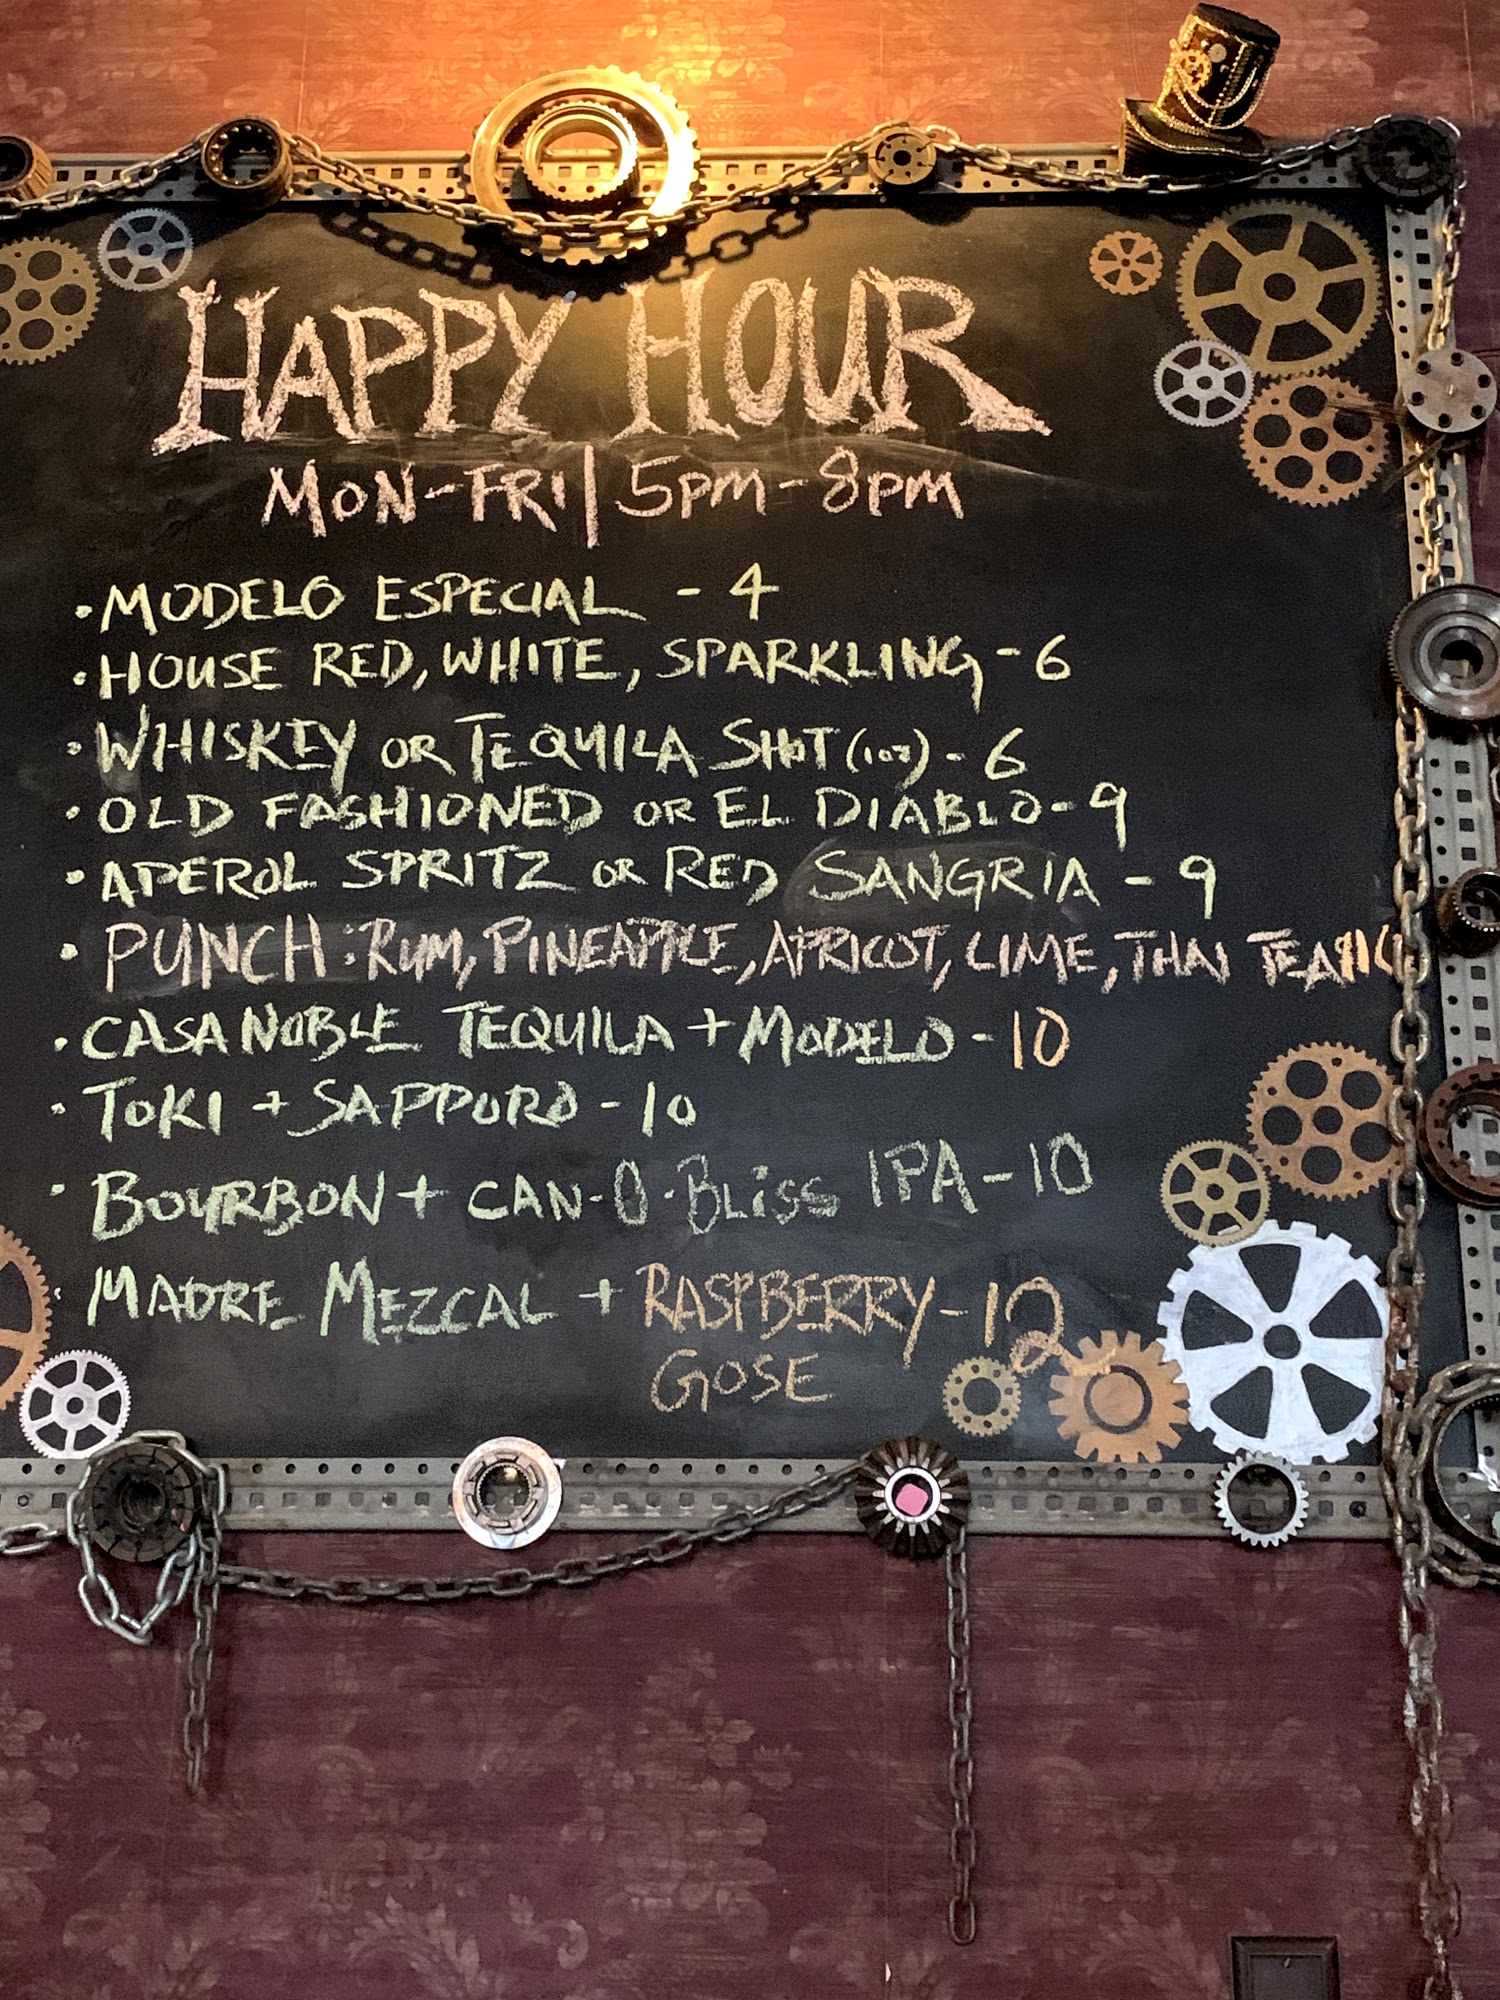 HAPPY HOUR
MON-FRI | 5PM-8PM
• MODELO ESPECIAL - 4
• HOUSE RED, WHITE, SPARKLING - 6
• WHISKEY OR TEQUILA SHOT (1oz) - 6
• OLD FASHIONED OR EL DIABLO - 9
• APEROL SPRITZ OR RED SANGRIA - 9
• PUNCH: RUM, PINEAPPLE, APRICOT, LIME, THAI TEA
• CASA NOBLE TEQUILA + MODELO - 10
• TOKI + SAPPORO - 10
• BOURBON + CAN-O-BLISS IPA - 10
• MADRE MEZCAL + RASPBERRY - 12
GOSE